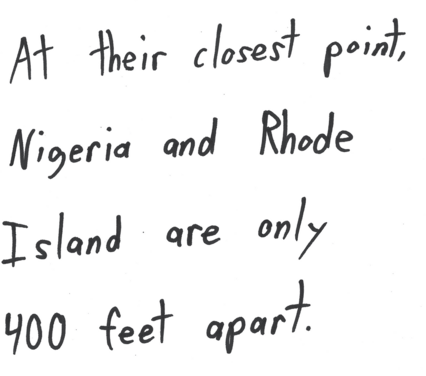 At their closest point,
Nigeria and Rhode
Island are only
400 feet apart.